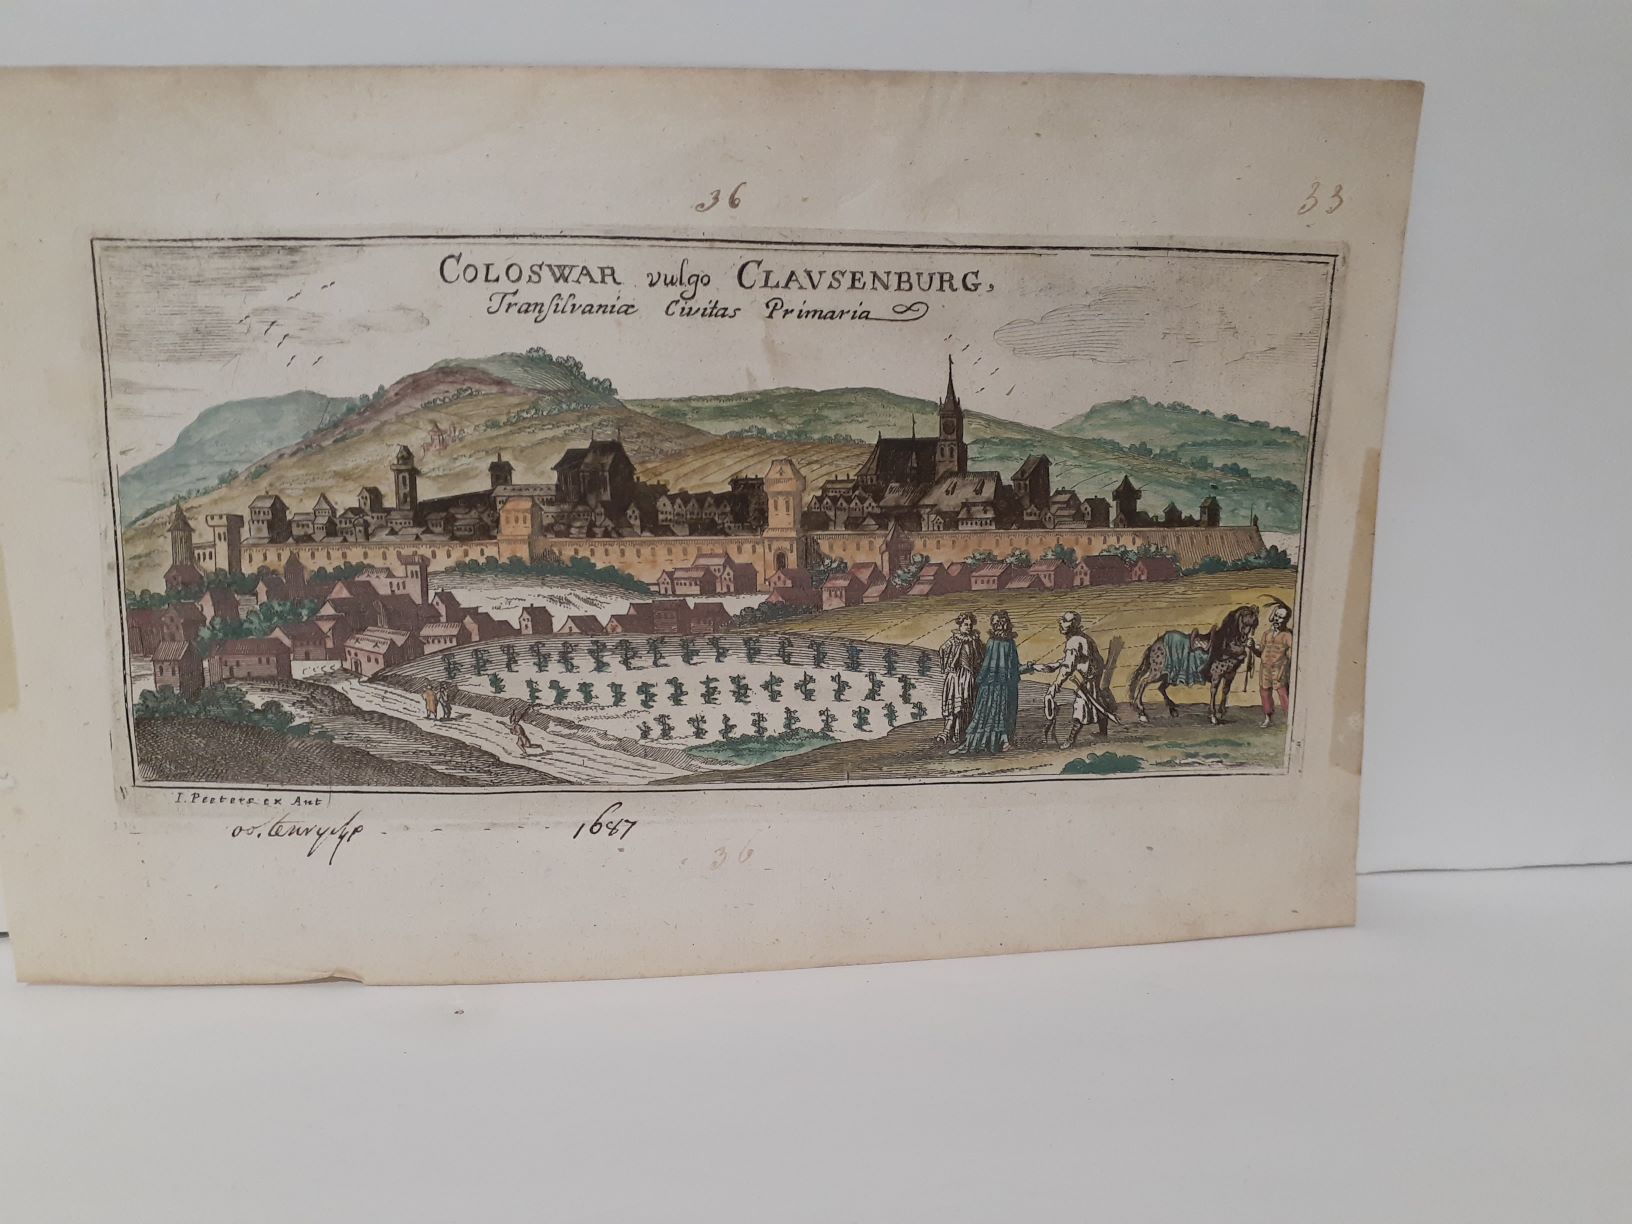 36
33
COLOSWAR vulgo CLAVSENBURG,
Tranſilvaniæ Civitas Primaria
I. Peeters ex Ant
1687
36